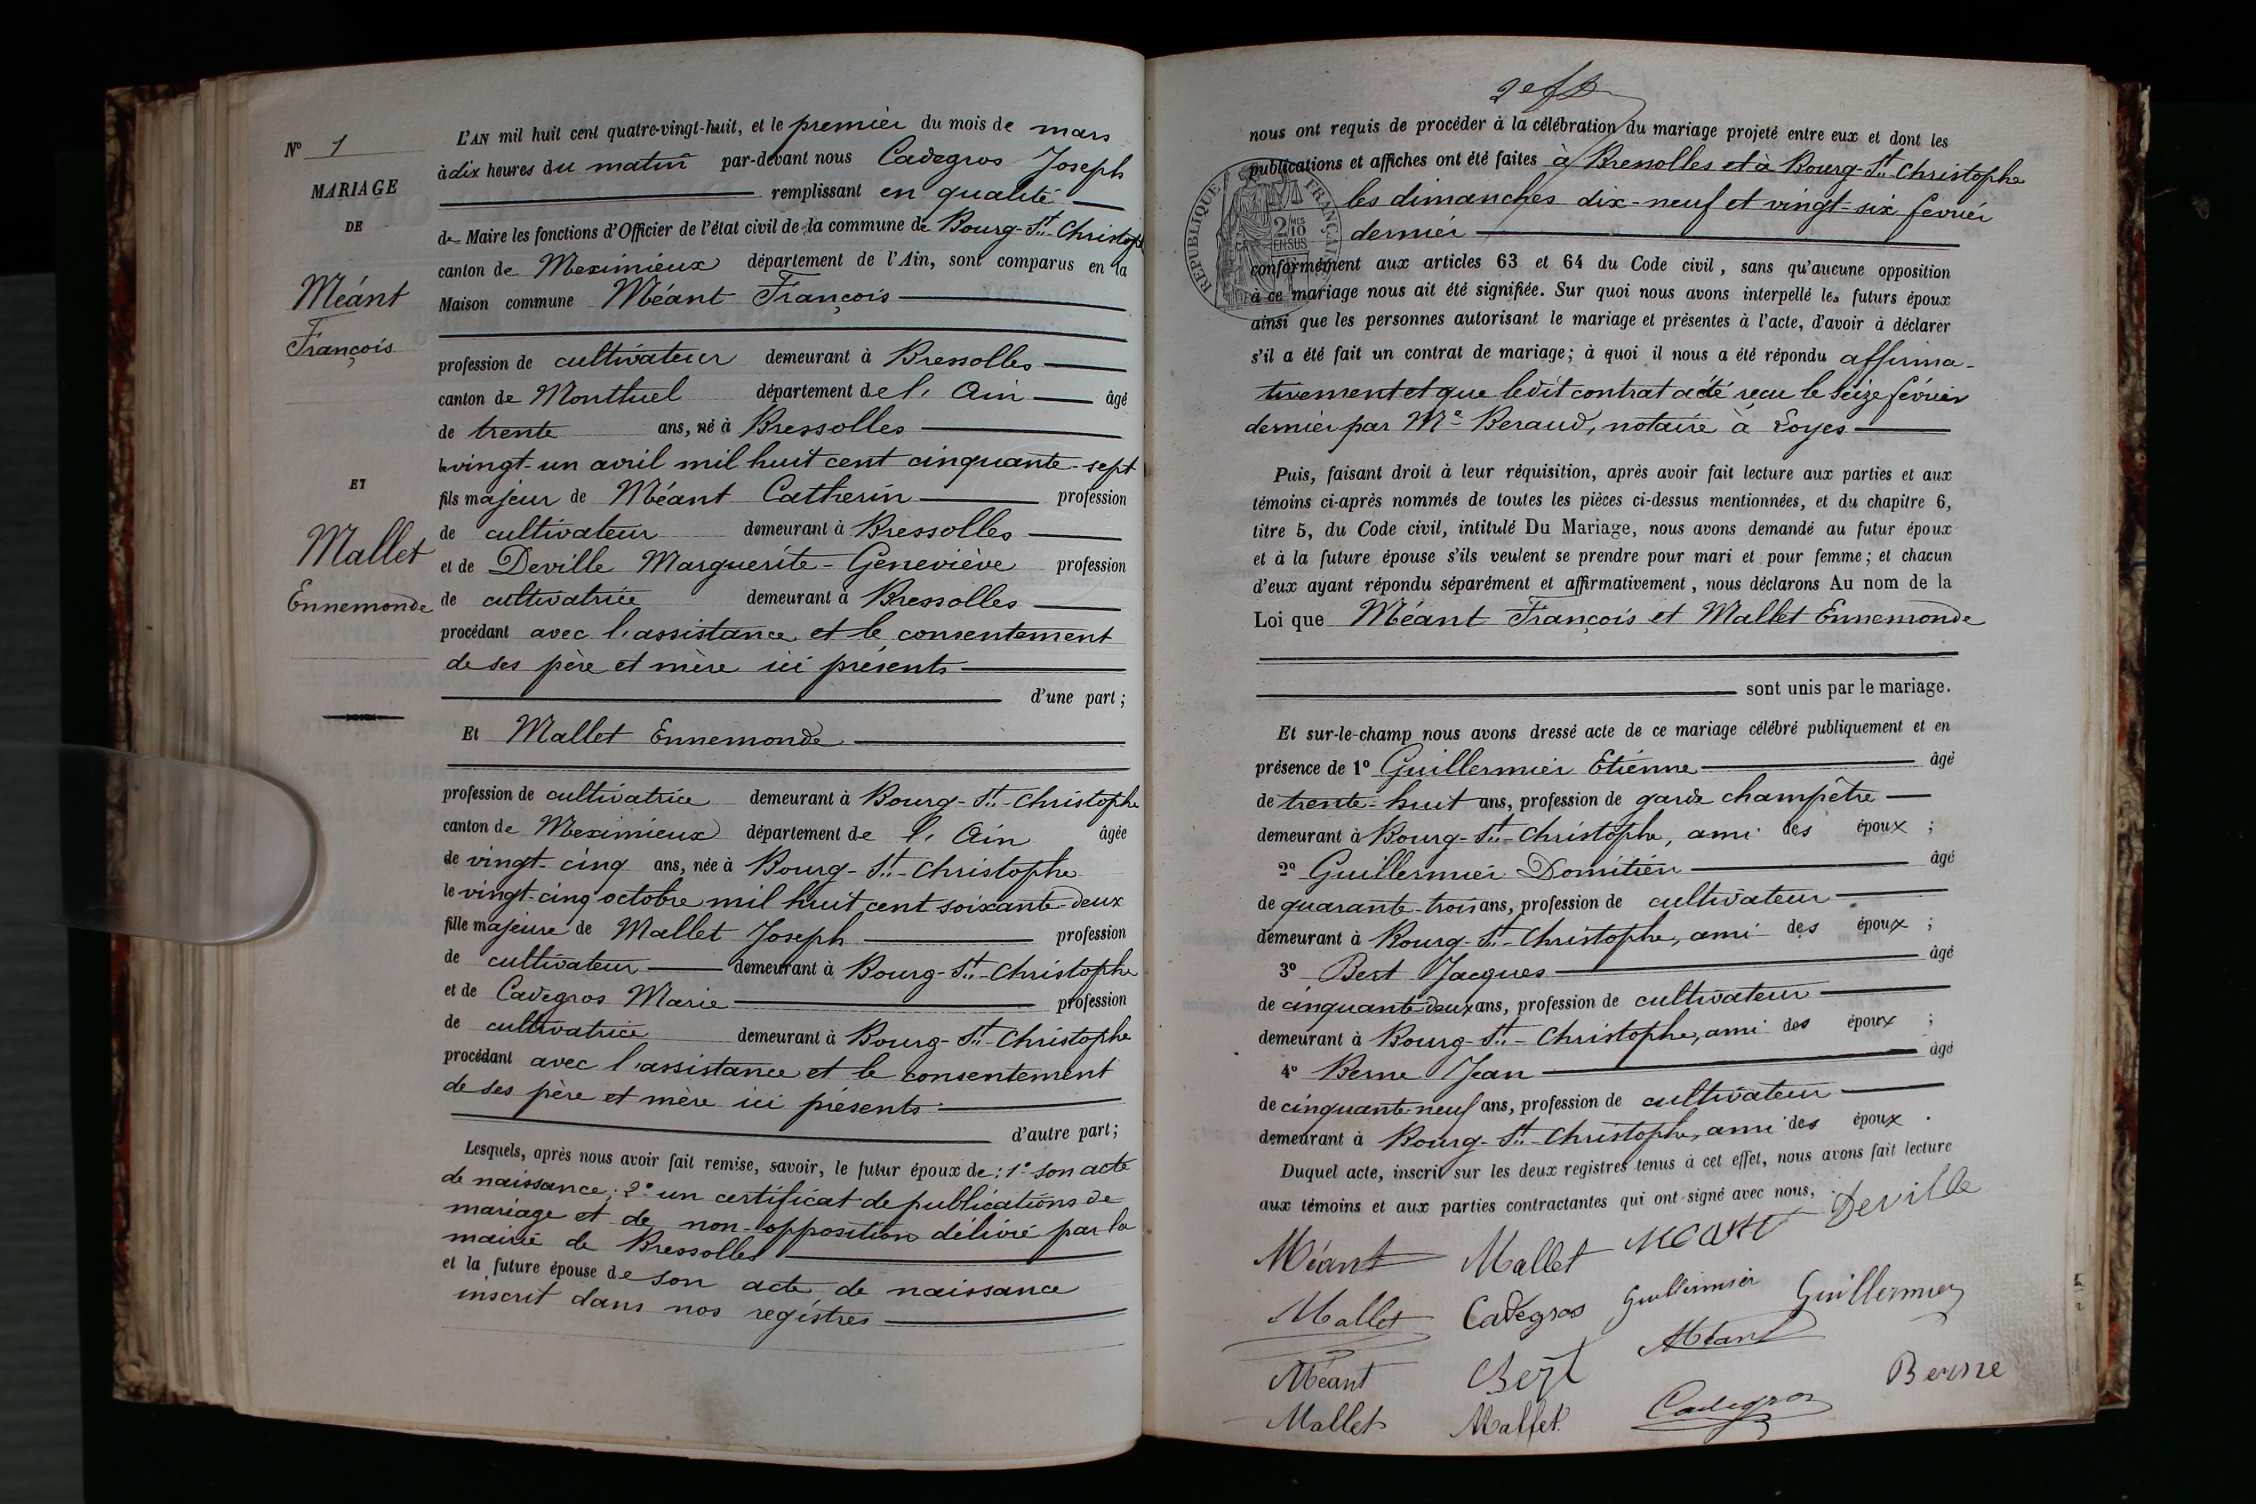 N° 1
MARIAGE
DE
Méant
François
ET
Mallet
Ennemonde
L'AN mil huit cent quatre-vingt-huit, et le premier du mois de mars
à dix heures du matin par-devant nous Cadegros Joseph
remplissant en qualité
de Maire les fonctions d'Officier de l'état civil de la commune de Bourg-St-Christophe
canton de Meximieux département de l'Ain, sont comparus en la
Maison commune Méant François
profession de cultivateur demeurant à Bressolles
canton de Montluel département de l'Ain âgé
de trente ans, né à Bressolles
le vingt-un avril mil huit cent cinquante-sept
fils majeur de Méant Catherin profession
de cultivateur demeurant à Bressolles
et de Deville Marguerite-Geneviève profession
de cultivatrice demeurant à Bressolles
procédant avec l'assistance et le consentement
de ses père et mère ici présents
d'une part ;
Et Mallet Ennemonde
profession de cultivatrice demeurant à Bourg-St-Christophe
canton de Meximieux département de l'Ain âgée
de vingt-cinq ans, née à Bourg-St-Christophe
le vingt-cinq octobre mil huit cent soixante-deux
fille majeure de Mallet Joseph profession
de cultivateur demeurant à Bourg-St-Christophe
et de Cadegros Marie profession
de cultivatrice demeurant à Bourg-St-Christophe
procédant avec l'assistance et le consentement
de ses père et mère ici présents
d'autre part ;
Lesquels, après nous avoir fait remise, savoir, le futur époux de : 1° son acte
de naissance ; 2° un certificat de publications de
mariage et de non-opposition délivré par la
mairie de Bressolles
et la future épouse de son acte de naissance
inscrit dans nos registres
nous ont requis de procéder à la célébration du mariage projeté entre eux et dont les
publications et affiches ont été faites à Bressolles et à Bourg-St-Christophe
les dimanches dix-neuf et vingt-six février
dernier
RÉPUBLIQUE FRANÇAISE
2/10 EN SUS
conformément aux articles 63 et 64 du Code civil, sans qu'aucune opposition
à ce mariage nous ait été signifiée. Sur quoi nous avons interpellé les futurs époux
ainsi que les personnes autorisant le mariage et présentes à l'acte, d'avoir à déclarer
s'il a été fait un contrat de mariage ; à quoi il nous a été répondu affirma-
tivement et que ledit contrat a été reçu le seize février
dernier par Me Beraud, notaire à Loyes
Puis, faisant droit à leur réquisition, après avoir fait lecture aux parties et aux
témoins ci-après nommés de toutes les pièces ci-dessus mentionnées, et du chapitre 6,
titre 5, du Code civil, intitulé Du Mariage, nous avons demandé au futur époux
et à la future épouse s'ils veulent se prendre pour mari et pour femme ; et chacun
d'eux ayant répondu séparément et affirmativement, nous déclarons Au nom de la
Loi que Méant François et Mallet Ennemonde
sont unis par le mariage.
Et sur-le-champ nous avons dressé acte de ce mariage célébré publiquement et en
présence de 1° Guillermier Etienne âgé
de trente-huit ans, profession de garde champêtre
demeurant à Bourg-St-Christophe, ami des époux ;
2° Guillermier Domitien âgé
de quarante-trois ans, profession de cultivateur
demeurant à Bourg-St-Christophe, ami des époux ;
3° Bert Jacques âgé
de cinquante-deux ans, profession de cultivateur
demeurant à Bourg-St-Christophe, ami des époux ;
4° Berne Jean âgé
de cinquante-neuf ans, profession de cultivateur
demeurant à Bourg-St-Christophe, ami des époux.
Duquel acte, inscrit sur les deux registres tenus à cet effet, nous avons fait lecture
aux témoins et aux parties contractantes qui ont signé avec nous,
Méant Mallet Meant Deville
Mallet Cadegros Guillermier Guillermier
Méant
Méant Bert Berne
Mallet Mallet Cadegros